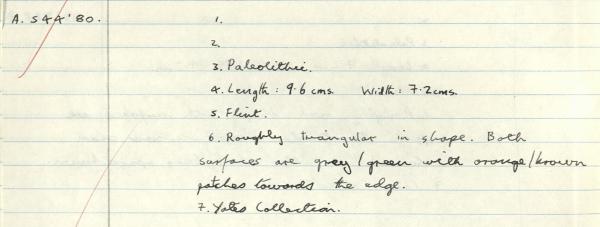 A. S44'80. 1.
2.
3. Paleolithic.
4. Length: 9.6 cms. Width: 7.2cms.
5. Flint.
6. Roughly triangular in shape. Both
surfaces are grey/green with orange/brown
patches towards the edge.
7. Yates Collection.